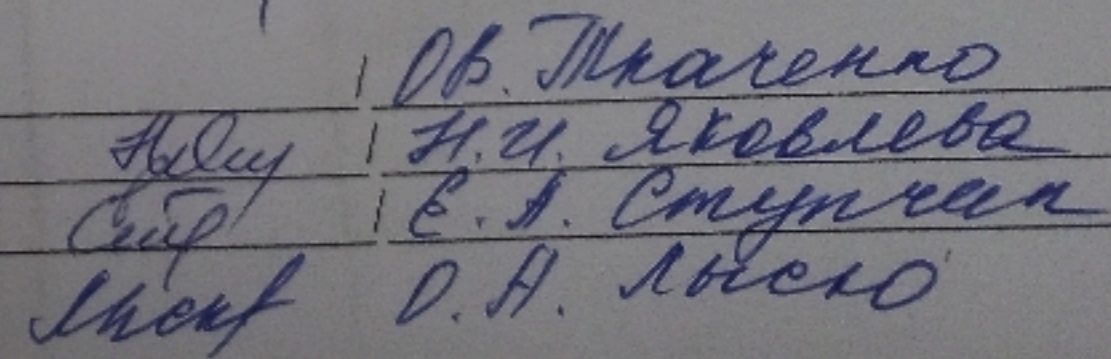 / О.В. Ткаченко
/ Н.И. Яковлева
/ Е.А. Ступчак
О.А. Лыско